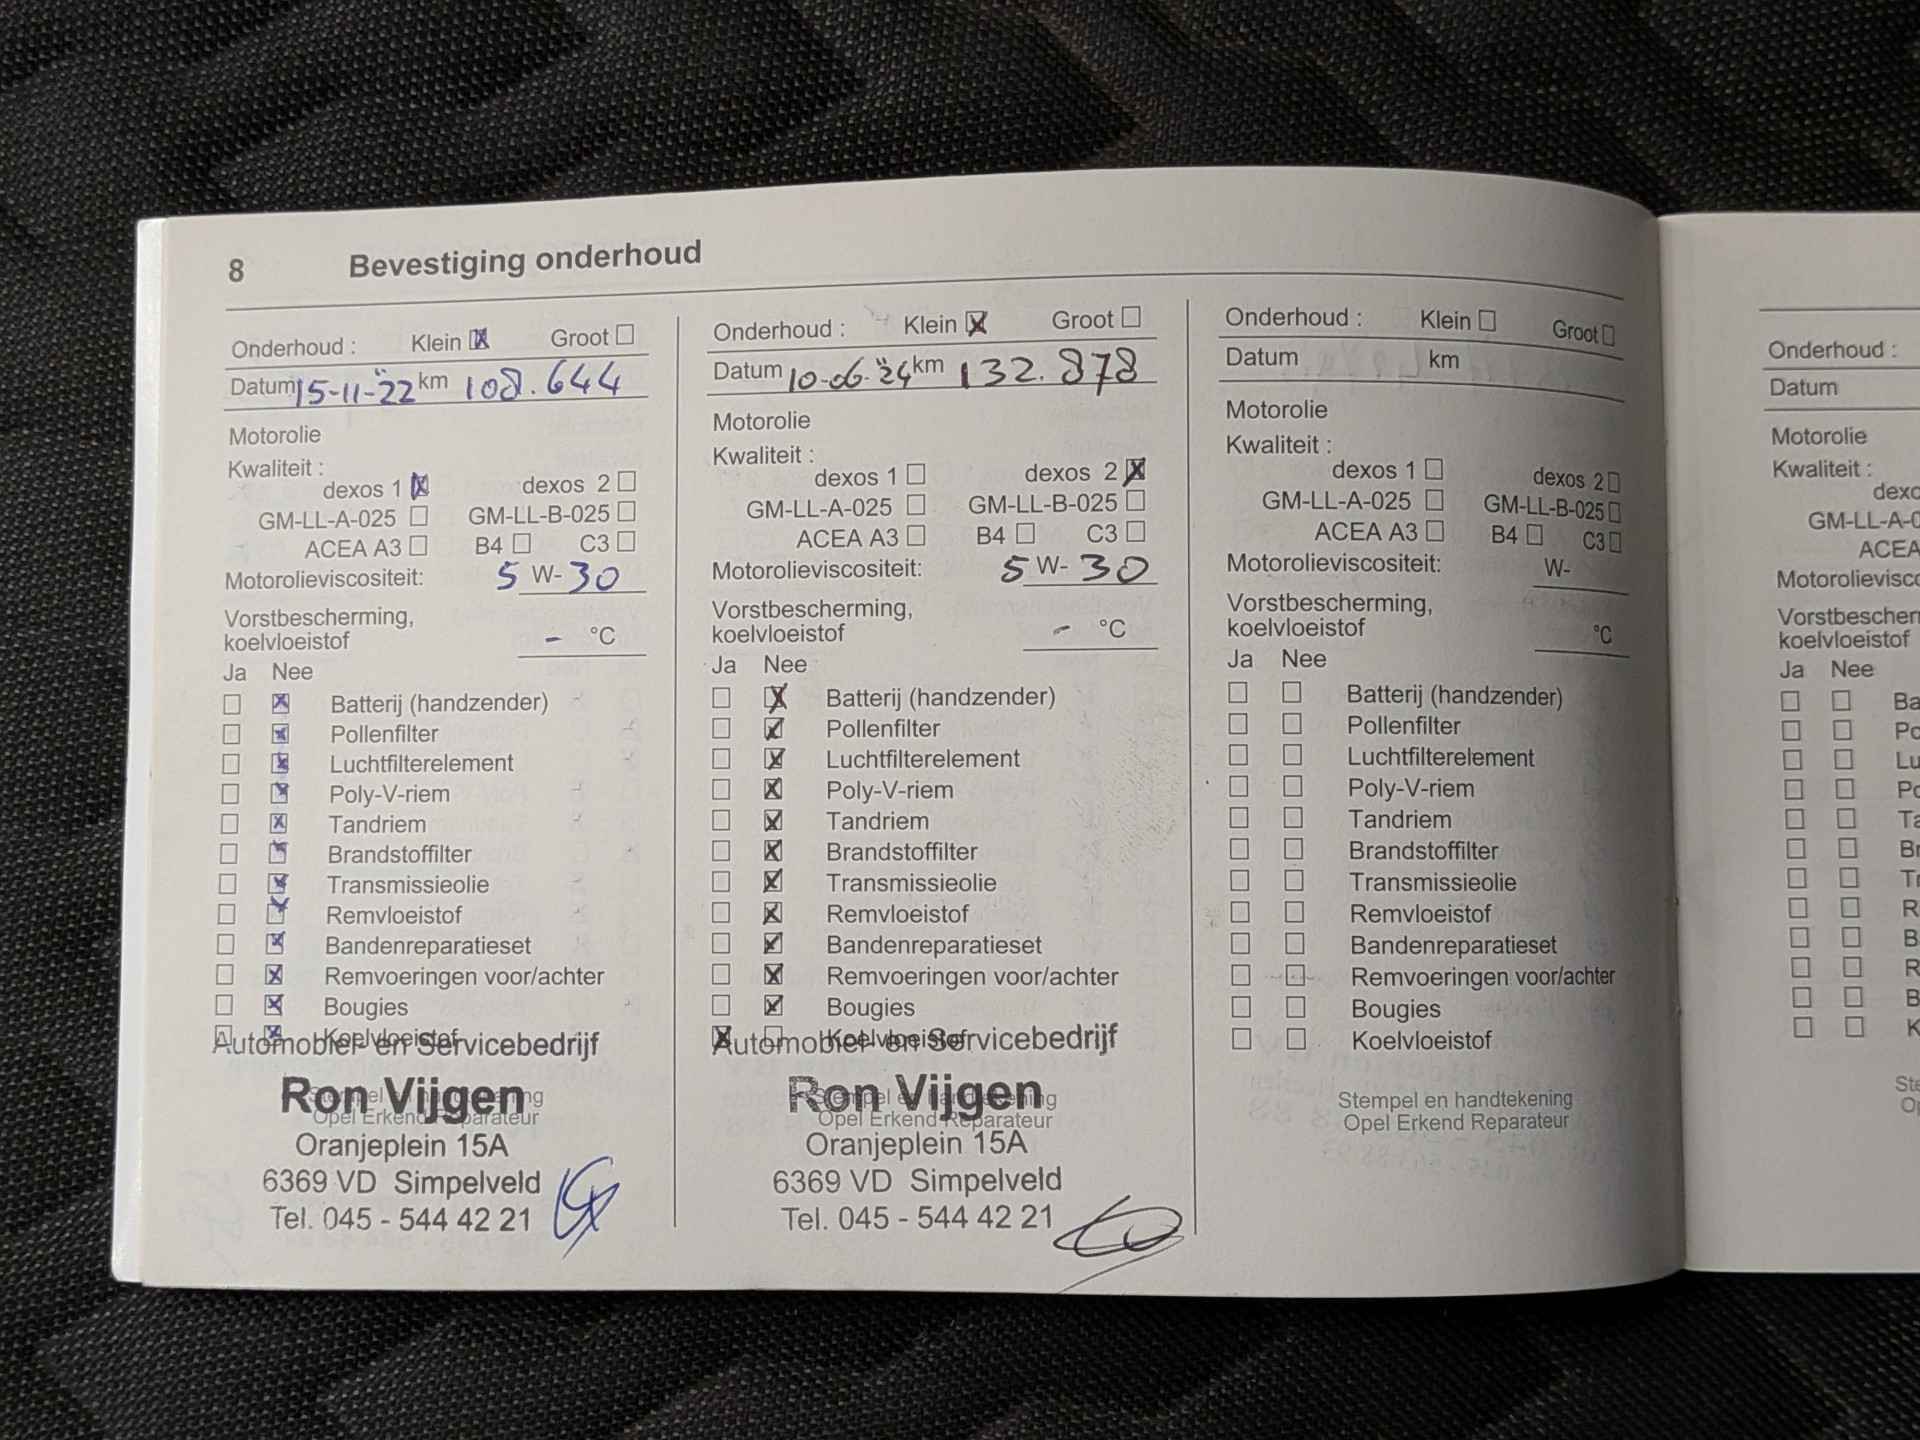 8 Bevestiging onderhoud
Onderhoud : Klein Groot
Datum 15-11-"22 km 108.644
Motorolie
Kwaliteit :
dexos 1 dexos 2
GM-LL-A-025 GM-LL-B-025
ACEA A3 B4 C3
Motorolieviscositeit: 5 W- 30
Vorstbescherming,
koelvloeistof - °C
Ja Nee
Batterij (handzender)
Pollenfilter
Luchtfilterelement
Poly-V-riem
Tandriem
Brandstoffilter
Transmissieolie
Remvloeistof
Bandenreparatieset
Remvoeringen voor/achter
Bougies
Koelvloeistof
Automobiel- en Servicebedrijf
Ron Vijgen
Stempel en handtekening
Opel Erkend Reparateur
Oranjeplein 15A
6369 VD Simpelveld
Tel. 045 - 544 42 21
Onderhoud : Klein Groot
Datum 10-06-"24 km 132.878
Motorolie
Kwaliteit :
dexos 1 dexos 2
GM-LL-A-025 GM-LL-B-025
ACEA A3 B4 C3
Motorolieviscositeit: 5 W- 30
Vorstbescherming,
koelvloeistof - °C
Ja Nee
Batterij (handzender)
Pollenfilter
Luchtfilterelement
Poly-V-riem
Tandriem
Brandstoffilter
Transmissieolie
Remvloeistof
Bandenreparatieset
Remvoeringen voor/achter
Bougies
Koelvloeistof
Automobiel- en Servicebedrijf
Ron Vijgen
Stempel en handtekening
Opel Erkend Reparateur
Oranjeplein 15A
6369 VD Simpelveld
Tel. 045 - 544 42 21
Onderhoud : Klein Groot
Datum km
Motorolie
Kwaliteit :
dexos 1 dexos 2
GM-LL-A-025 GM-LL-B-025
ACEA A3 B4 C3
Motorolieviscositeit: W-
Vorstbescherming,
koelvloeistof °C
Ja Nee
Batterij (handzender)
Pollenfilter
Luchtfilterelement
Poly-V-riem
Tandriem
Brandstoffilter
Transmissieolie
Remvloeistof
Bandenreparatieset
Remvoeringen voor/achter
Bougies
Koelvloeistof
Stempel en handtekening
Opel Erkend Reparateur
Onderhoud :
Datum
Motorolie
Kwaliteit :
koelvloeistof
Ja Nee